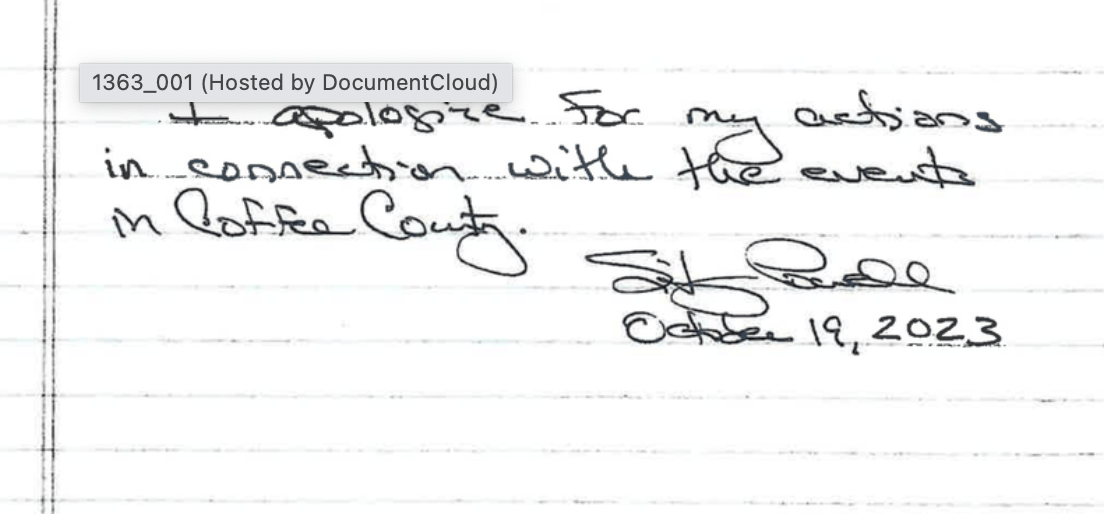 1363_001 (Hosted by DocumentCloud)
I apologize for my actions
in connection with the events
in Coffee County.
Sidney Powell
October 19, 2023